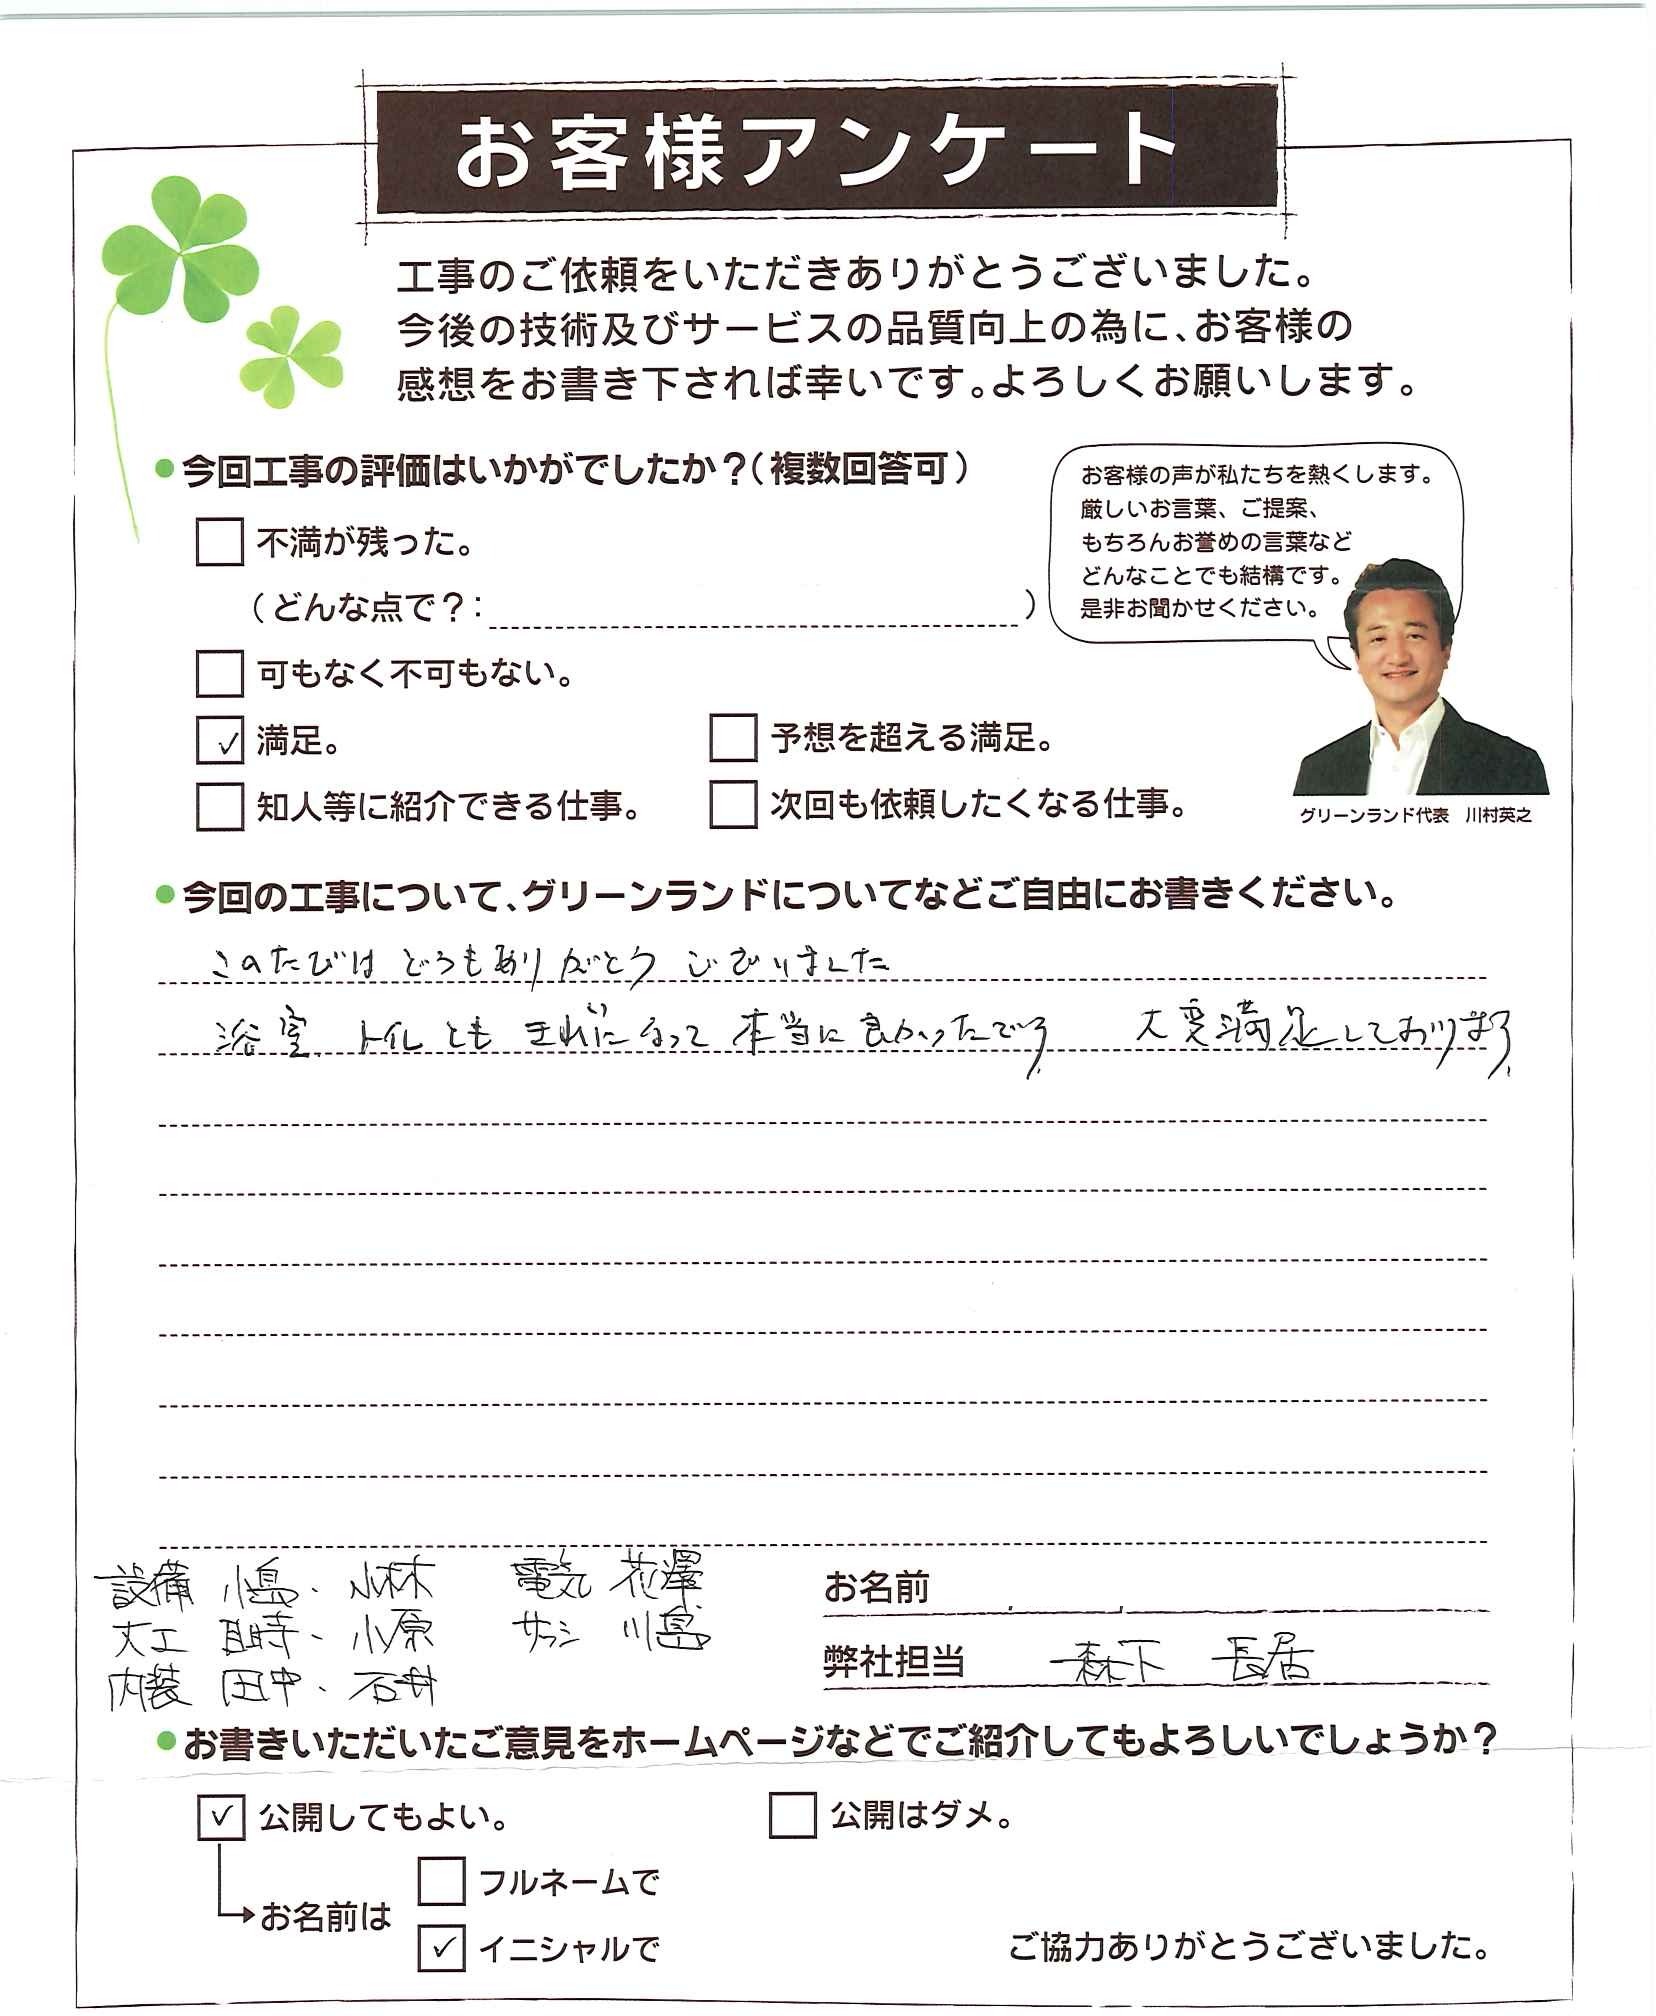 お客様アンケート
工事のご依頼をいただきありがとうございました。
今後の技術及びサービスの品質向上の為に、お客様の
感想をお書き下されば幸いです。よろしくお願いします。
●今回工事の評価はいかがでしたか？（複数回答可）
お客様の声が私たちを熱くします。
厳しいお言葉、ご提案、
もちろんお誉めの言葉など
どんなことでも結構です。
是非お聞かせください。
グリーンランド代表　川村英之
不満が残った。
（どんな点で？：　）
可もなく不可もない。
✓ 満足。　予想を超える満足。
知人等に紹介できる仕事。　次回も依頼したくなる仕事。
●今回の工事について、グリーンランドについてなどご自由にお書きください。
このたびは どうもありがとう ございました
浴室 トイレとも きれいになって 本当に良かったです。 大変満足しております。
設備 小島・小林　電気 花澤
大工 目時・小原　サッシ 川島
内装 田中・石井
お名前
弊社担当　森下　長居
●お書きいただいたご意見をホームページなどでご紹介してもよろしいでしょうか？
✓ 公開してもよい。　公開はダメ。
お名前は
フルネームで
✓ イニシャルで
ご協力ありがとうございました。